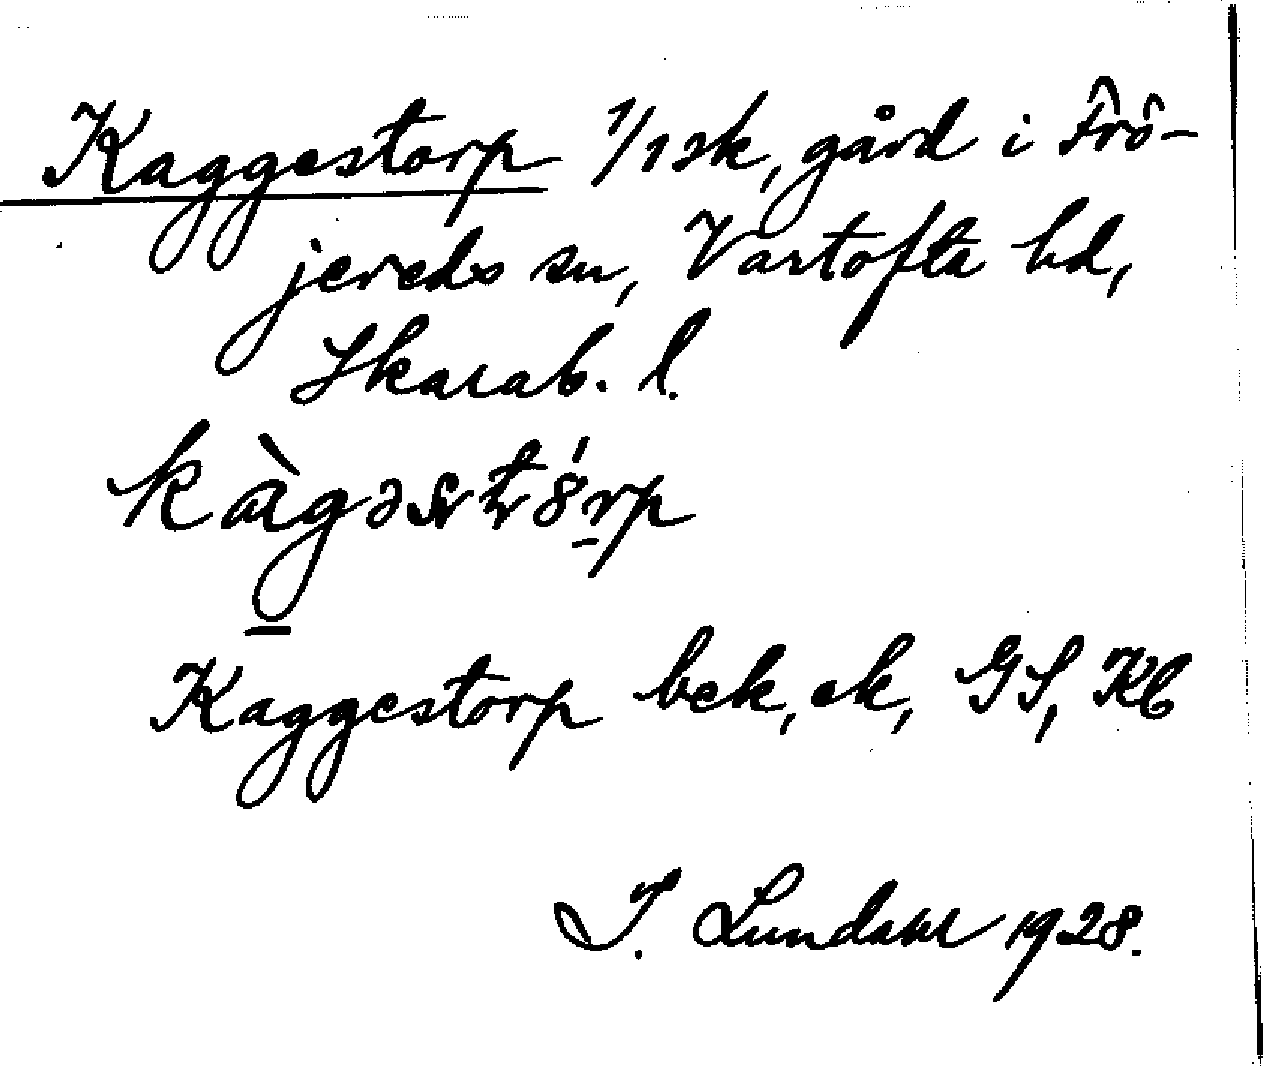 Kaggestorp 1/1 sk, gård i Frö-
jereds sn, Vartofta hd,
Skarab. l.
kàgəstórp
Kaggestorp bek, ek, GS, Kb
I. Lundahl 1928.